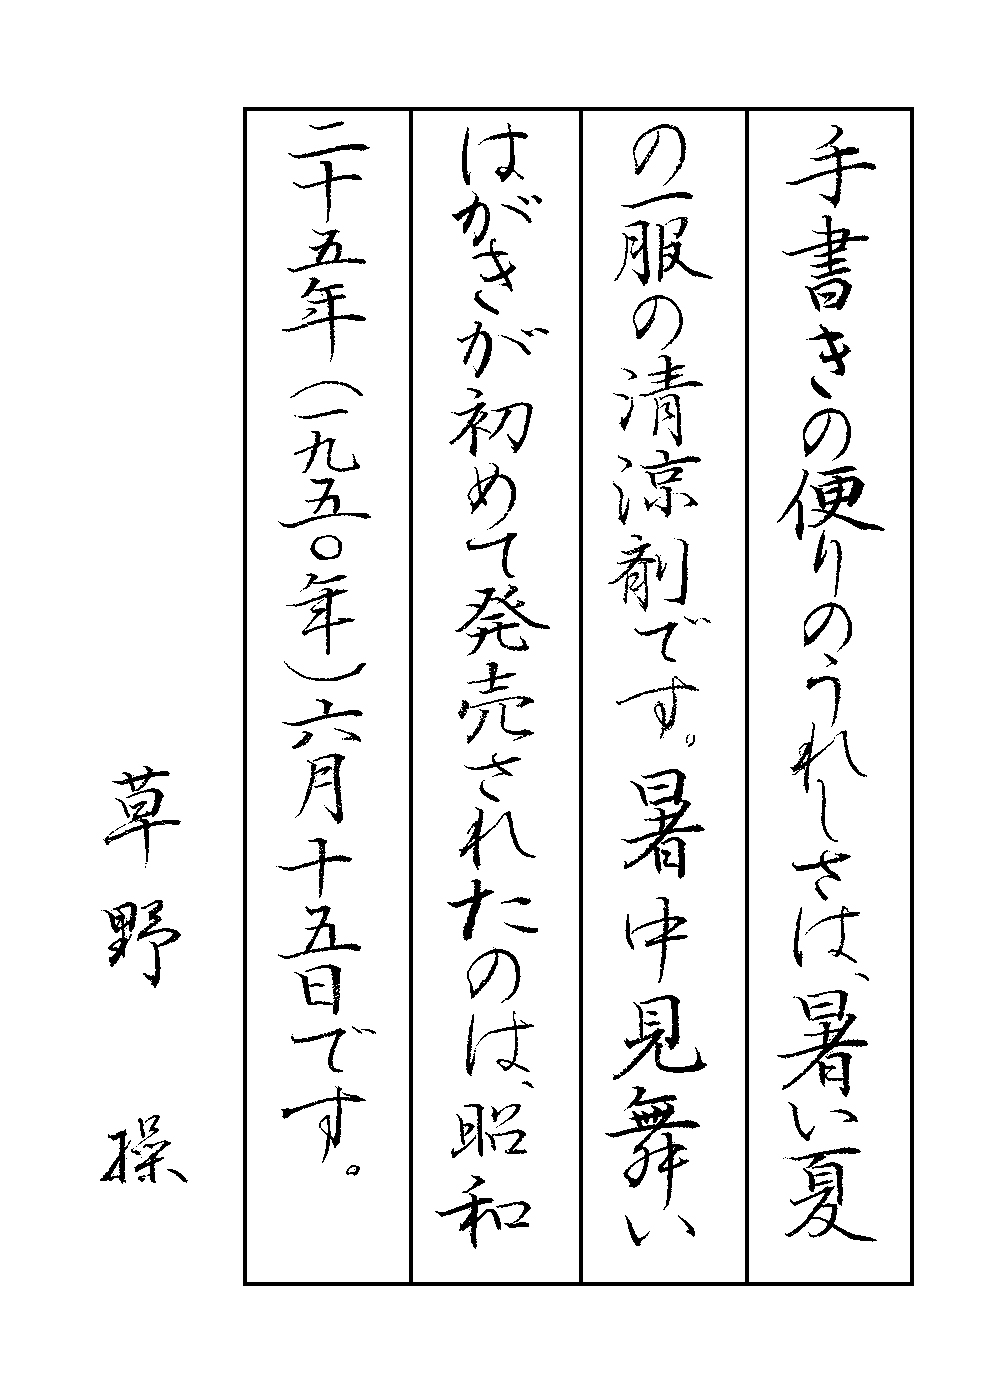 手書きの便りのうれしさは、暑い夏
の一服の清涼剤です。暑中見舞い
はがきが初めて発売されたのは、昭和
二十五年（一九五〇年）六月十五日です。
草野　操